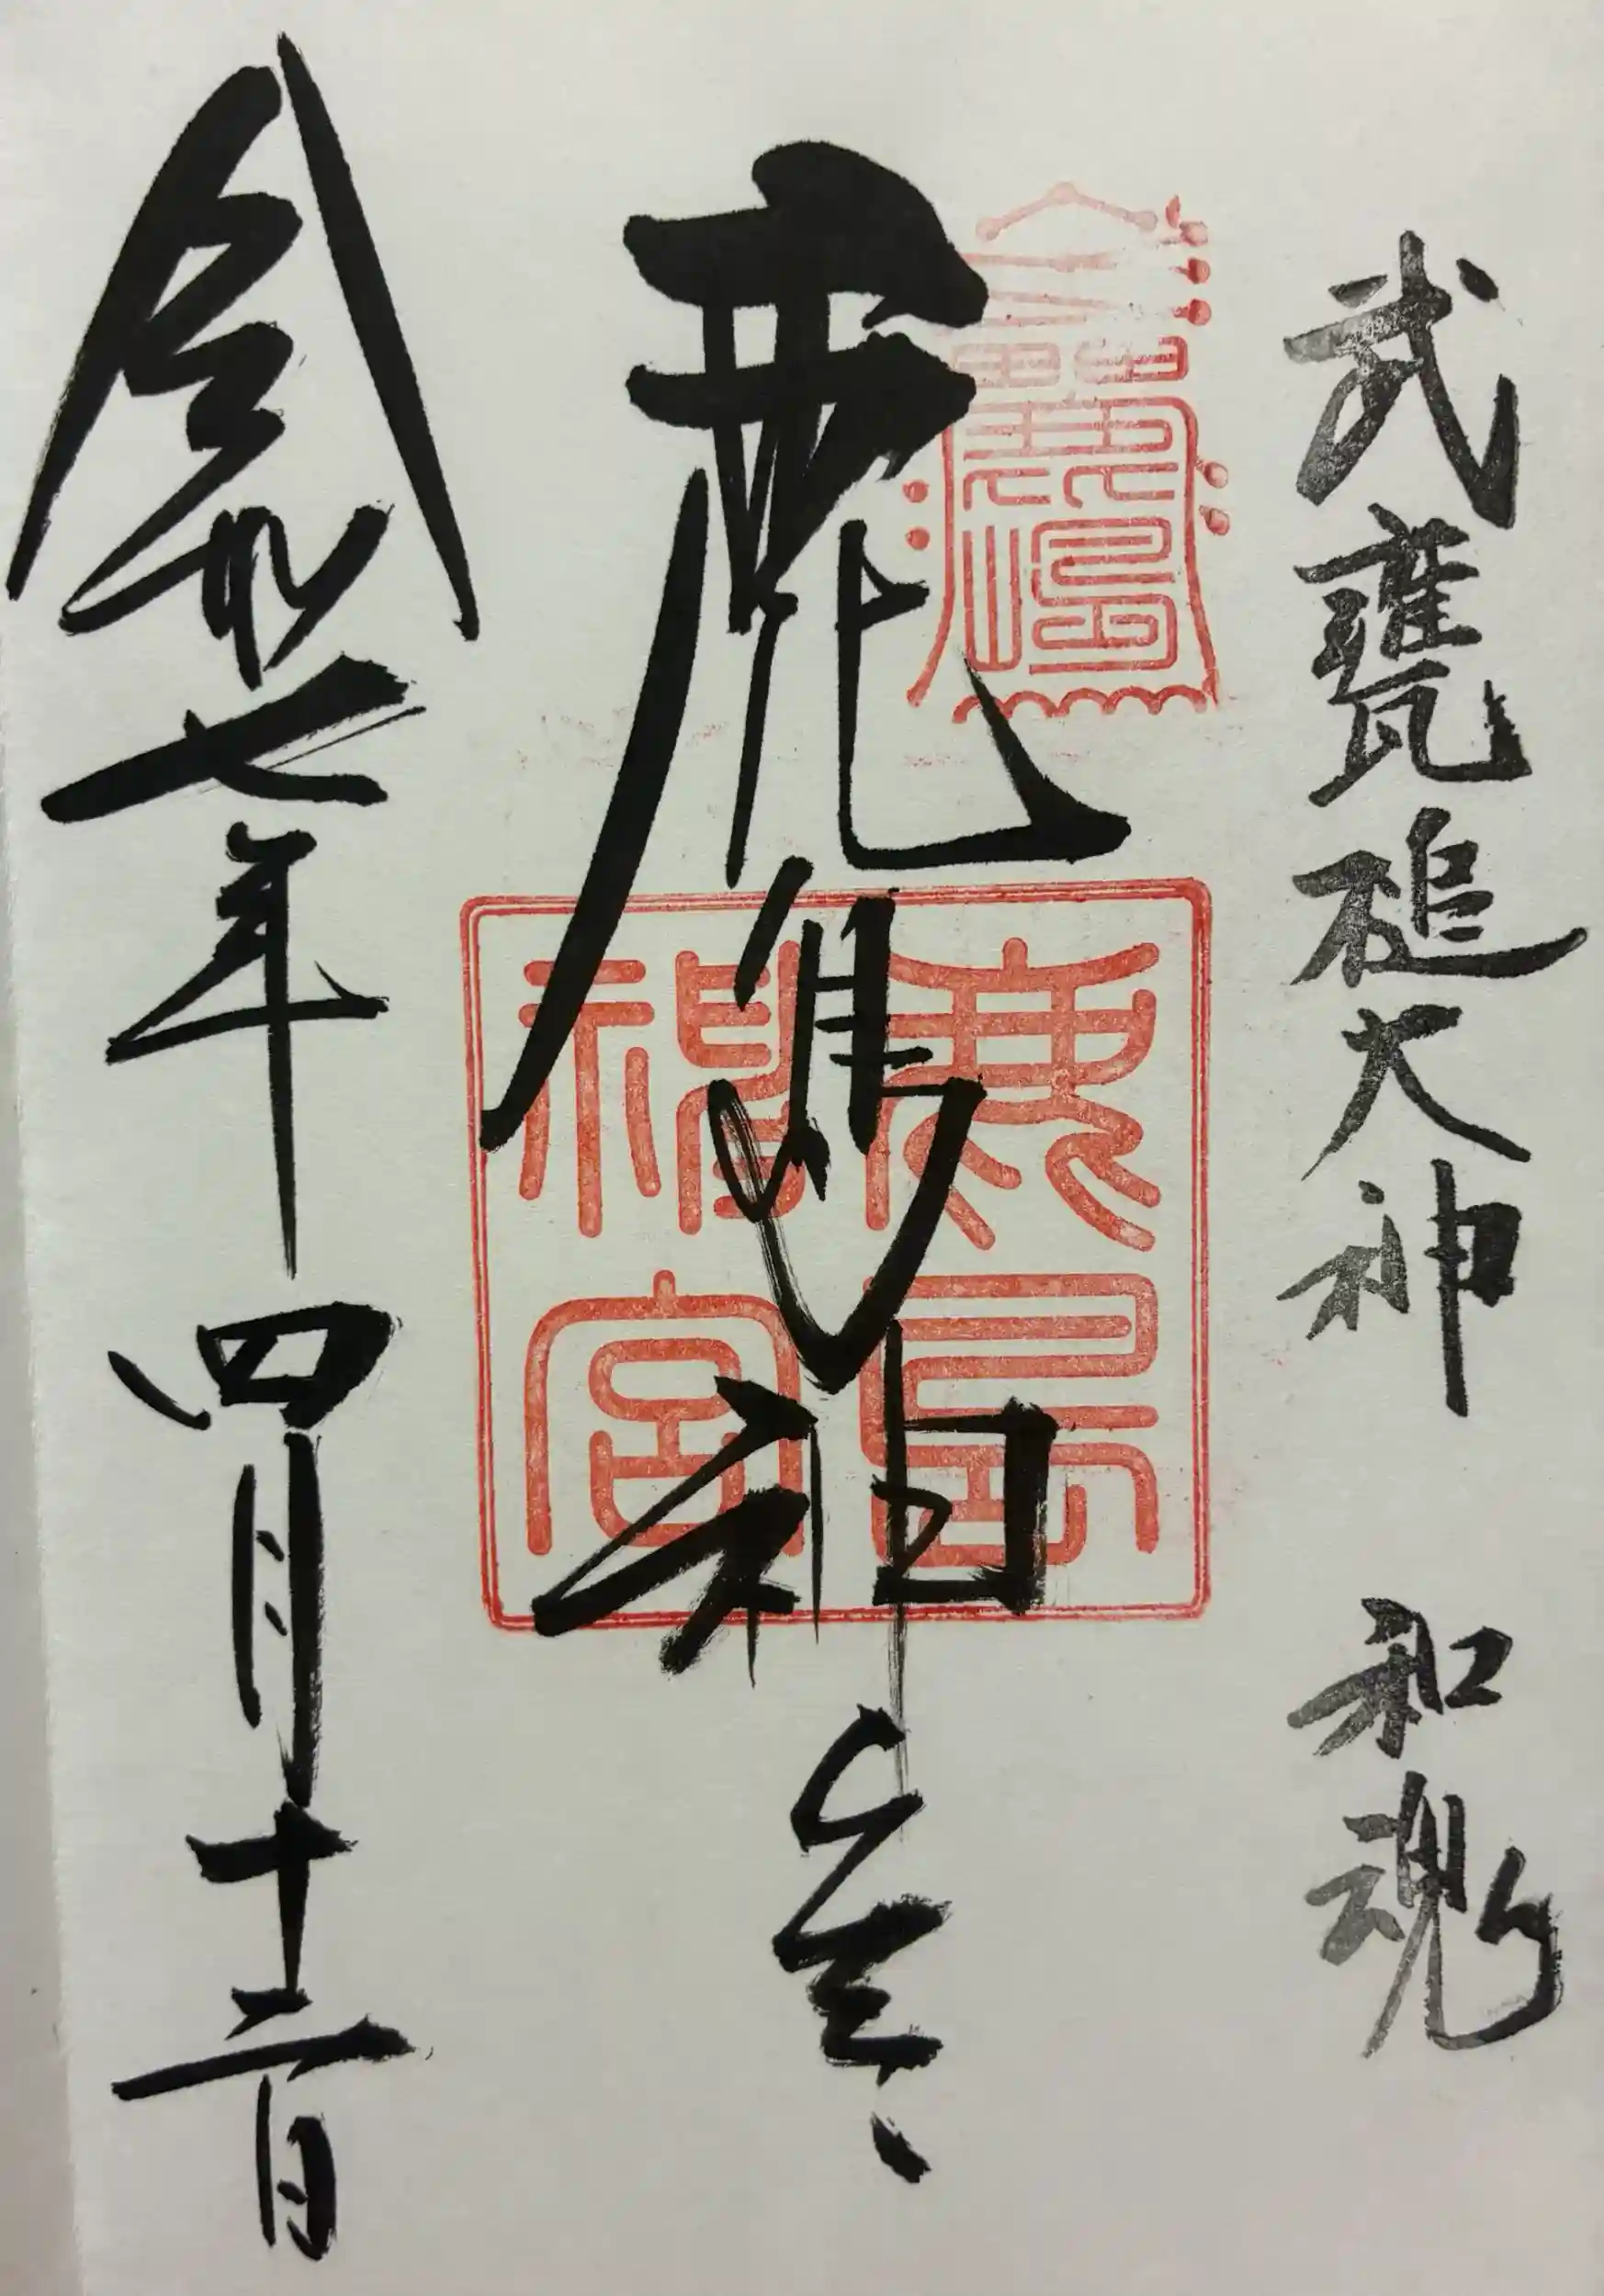 武甕槌大神 和魂
鹿島神宮
鹿島神宮
令和七年四月十二日